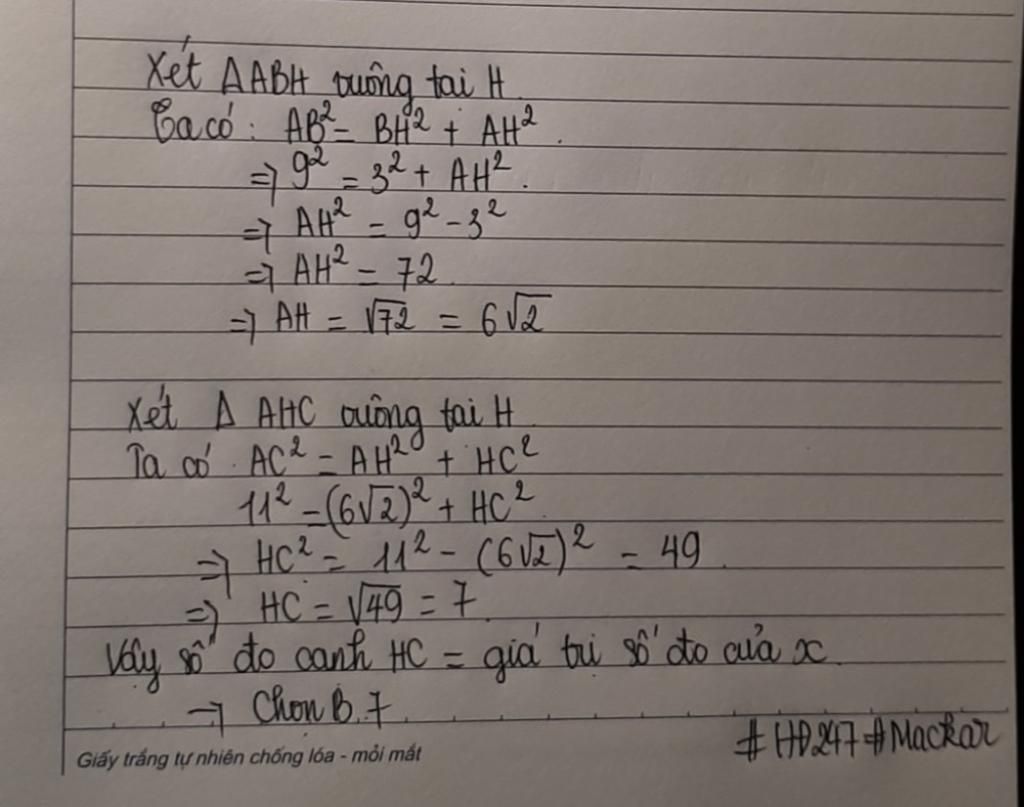 Xét ΔABH vuông tại H
Ta có: AB² = BH² + AH².
=> 9² = 3² + AH².
=> AH² = 9² - 3²
=> AH² = 72
=> AH = √72 = 6√2
Xét Δ AHC vuông tại H
Ta có AC² = AH² + HC²
11² = (6√2)² + HC²
=> HC² = 11² - (6√2)² = 49
=> HC = √49 = 7
Vậy số đo cạnh HC = giá trị số đo của x
→ Chọn B. 7
#HĐ247#Mackar
Giấy trắng tự nhiên chống lóa - mỏi mắt